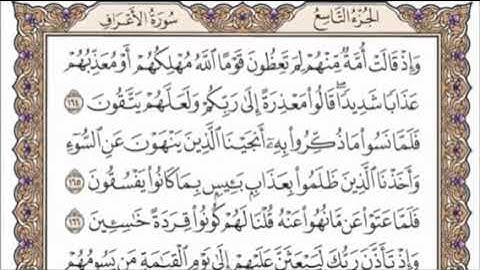 الجزء التاسع
سورة الأعراف
وَإِذْ قَالَتْ أُمَّةٌ مِّنْهُمْ لِمَ تَعِظُونَ قَوْمًا ٱللَّهُ مُهْلِكُهُمْ أَوْ مُعَذِّبُهُمْ
عَذَابًا شَدِيدًا ۖ قَالُوا۟ مَعْذِرَةً إِلَىٰ رَبِّكُمْ وَلَعَلَّهُمْ يَتَّقُونَ ١٦٤
فَلَمَّا نَسُوا۟ مَا ذُكِّرُوا۟ بِهِۦٓ أَنجَيْنَا ٱلَّذِينَ يَنْهَوْنَ عَنِ ٱلسُّوٓءِ
وَأَخَذْنَا ٱلَّذِينَ ظَلَمُوا۟ بِعَذَابٍۭ بَـِٔيسٍۭ بِمَا كَانُوا۟ يَفْسُقُونَ ١٦٥
فَلَمَّا عَتَوْا۟ عَن مَّا نُهُوا۟ عَنْهُ قُلْنَا لَهُمْ كُونُوا۟ قِرَدَةً خَـٰسِـِٔينَ ١٦٦
وَإِذْ تَأَذَّنَ رَبُّكَ لَيَبْعَثَنَّ عَلَيْهِمْ إِلَىٰ يَوْمِ ٱلْقِيَـٰمَةِ مَن يَسُومُهُمْ